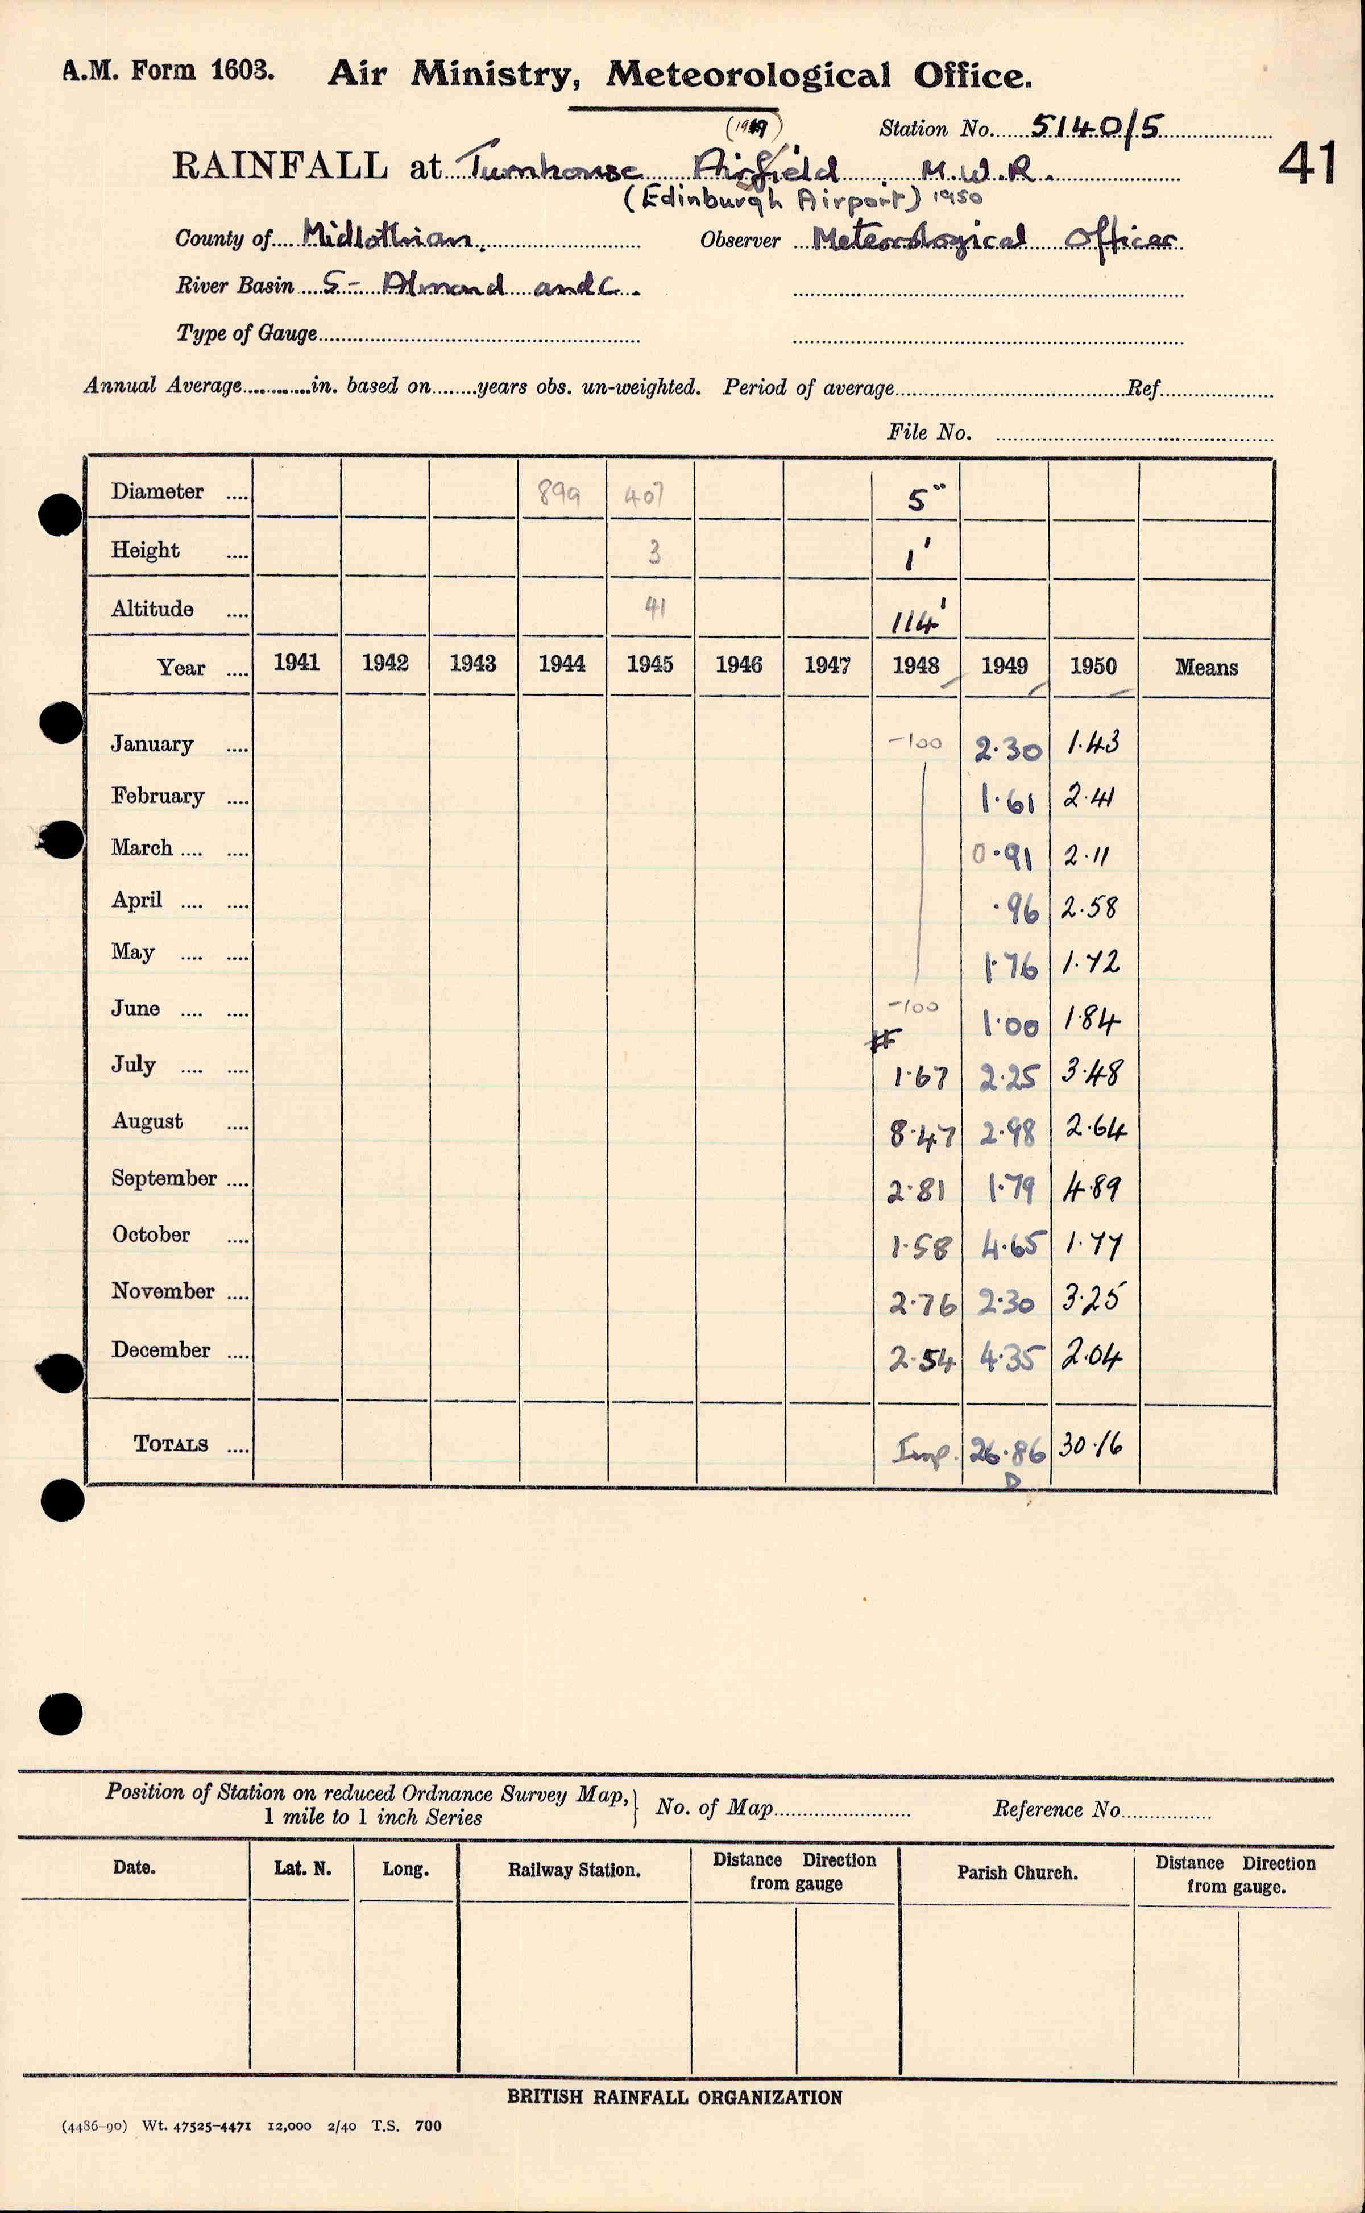 A.M. Form 1603. Air Ministry, Meteorological Office.
(1949) Station No. 5140/5
41
RAINFALL at Turnhouse Airfield M.W.R.
(Edinburgh Airport) 1950
County of Midlothian. Observer Meteorological Officer
River Basin 5- Almond and C.
Type of Gauge
Annual Average in. based on years obs. un-weighted. Period of average Ref.
File No.
Diameter 899 407 5"
Height 3 1'
Altitude 41 114'
Year 1941 1942 1943 1944 1945 1946 1947 1948 1949 1950 Means
January -100 2.30 1.43
February 1.61 2.41
March 0.91 2.11
April .96 2.58
May 1.76 1.72
June -100 1.00 1.84
July 1.67 2.25 3.48
August 8.47 2.98 2.64
September 2.81 1.79 4.89
October 1.58 4.65 1.77
November 2.76 2.30 3.25
December 2.54 4.35 2.04
TOTALS Imp. 26.86 30.16
D
Position of Station on reduced Ordnance Survey Map,
1 mile to 1 inch Series } No. of Map Reference No.
Date. Lat. N. Long. Railway Station. Distance Direction from gauge Parish Church. Distance Direction from gauge.
BRITISH RAINFALL ORGANIZATION
(4486-90) Wt. 47525-4471 12,000 2/40 T.S. 700